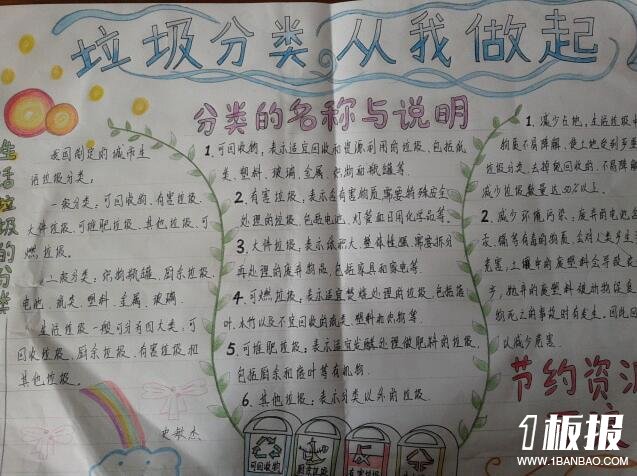 垃圾分类 从我做起
生活垃圾的分类
我国制定的城市生
活垃圾分类:
一级分类:可回收物、有害垃圾、
大件垃圾、可堆肥垃圾、其他垃圾、可
燃垃圾。
二级分类:织物、瓶罐、厨余垃圾、
电池、纸类、塑料、金属、玻璃
生活垃圾一般可分为四大类:可
回收垃圾、厨余垃圾、有害垃圾和
其他垃圾。
分类的名称与说明
1.可回收物,表示适宜回收和资源利用的垃圾,包括纸
类、塑料、玻璃、金属、织物和瓶罐等.
2.有害垃圾,表示含有害物质,需要特殊安全
处理的垃圾,包括电池、灯管和日用化学品等.
3.大件垃圾:表示体积大、整体性强,需要拆分
再处理的废弃物品,包括家具和家电等.
4.可燃垃圾:表示适宜焚烧处理的垃圾,包括植
叶、木竹以及不宜回收的纸类、塑料和织物等.
5.可堆肥垃圾:表示适宜发酵处理做肥料的垃圾,
包括厨余和落叶等有机物.
6.其他垃圾:表示分类以外的垃圾.
1.减少占地,生活垃圾中
物质不易降解,使土地受到
垃圾分类,去掉能回收的、不易降
减少垃圾数量达50%以上.
2.减少环境污染:废弃的电池含
汞、镉等有毒的物质,会对人类产生
危害,土壤中的废塑料会导致
抛弃的废塑料被动物误
物死亡的事故时有发生。因此回
以减少危害.
节约资源
可回收物
厨余垃圾
有害垃圾
1板报
WWW.1BANBAO.COM